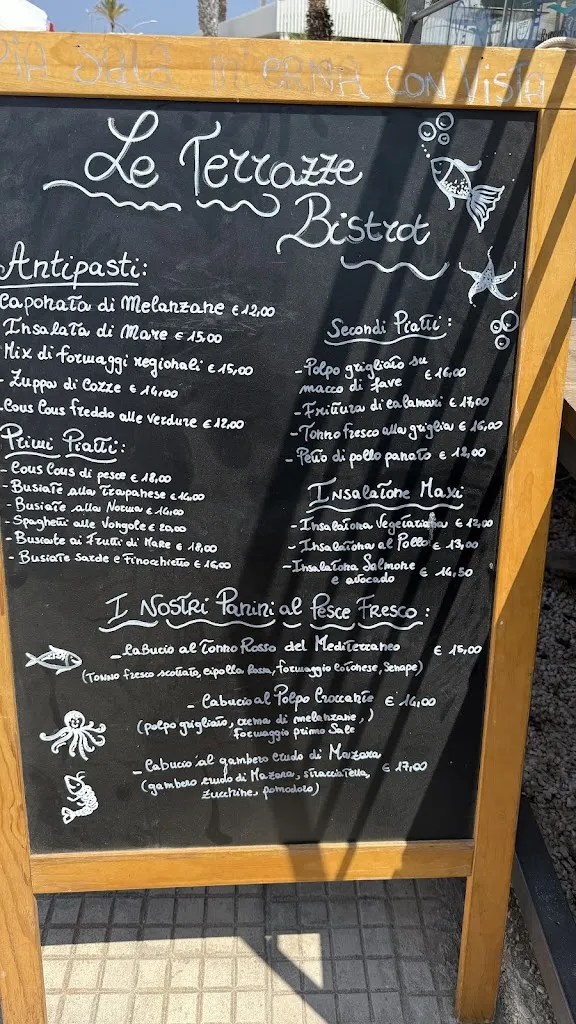 Sala interna con vista
Le Terrazze
Bistrot
Antipasti:
Caponata di Melanzane € 12,00
Insalata di Mare € 15,00
Mix di formaggi regionali € 15,00
- Zuppa di Cozze € 14,00
Cous Cous freddo alle verdure € 12,00
Primi Piatti:
- Cous Cous di pesce € 18,00
- Busiate alla Trapanese € 14,00
- Busiate alla Norma € 14,00
- Spaghetti alle Vongole € 20,00
- Busiate ai Frutti di Mare € 18,00
- Busiate Sarde e Finocchietto € 16,00
Secondi Piatti:
- Polpo grigliato su
macco di fave € 16,00
- Frittura di calamari € 17,00
- Tonno fresco alla griglia € 16,00
- Petto di pollo panato € 12,00
Insalatone Maxi
- Insalatona Vegetariana € 12,00
- Insalatona al Pollo € 13,00
- Insalatona Salmone
e avocado € 14,50
I Nostri Panini al Pesce Fresco:
- Cabucio al Tonno Rosso del Mediterraneo € 15,00
(Tonno fresco scottato, cipolla Rossa, formaggio Cotonese, Senape)
- Cabucio al Polpo Croccante € 14,00
(polpo grigliato, crema di melanzane,)
formaggio primo Sale
- Cabucio al gambero crudo di Mazara
(gambero crudo di Mazara, stracciatella, € 17,00
zucchine, pomodoro)